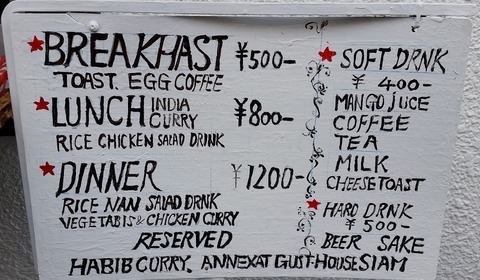 BREAKHAST ¥500-
TOAST. EGG COFFEE
LUNCH INDIA CURRY ¥800-
RICE CHICKEN SALAD DRINK
DINNER ¥1200-
RICE NAN SALAD DRNK
VEGETABIS & CHICKEN CURRY
RESERVED
SOFT DRNK
¥ 400-
MANGO JUCE
COFFEE
TEA
MILK
CHEESE TOAST
HARD DRNK
¥500-
BEER SAKE
HABIB CURRY. ANNEXAT GUST-HOUSE SIAM